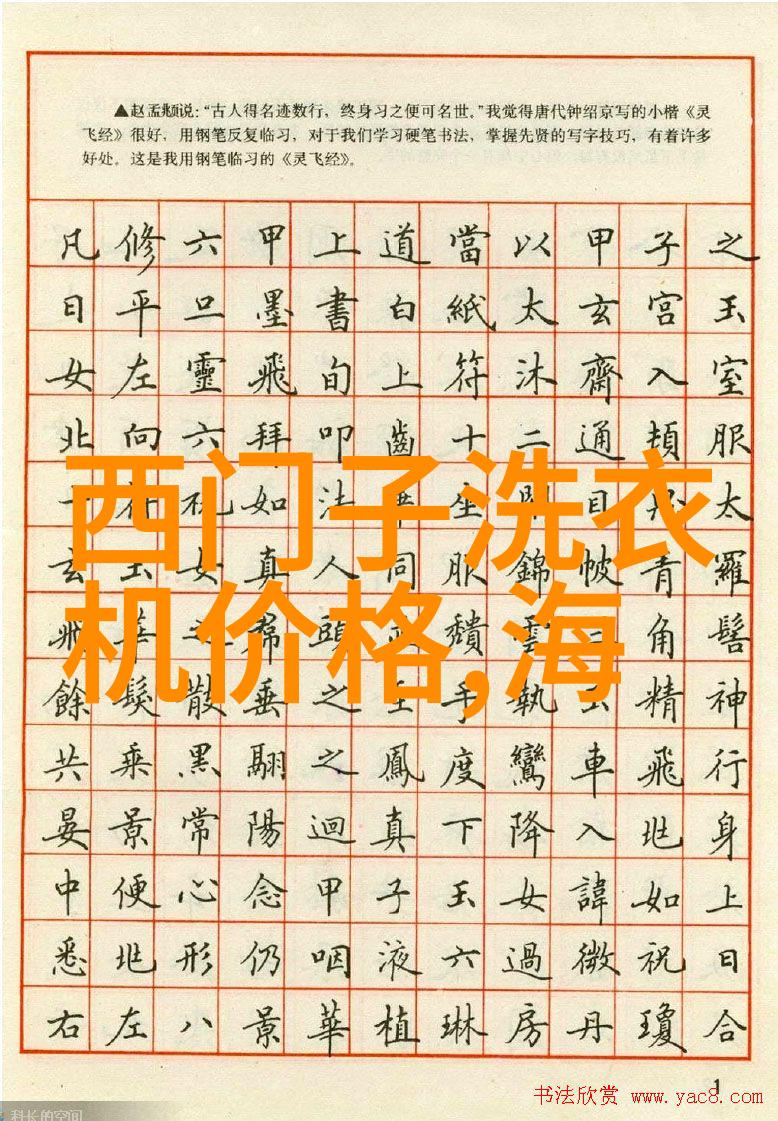 ▲赵孟頫说：“古人得名迹数行，终身习之便可名世。”我觉得唐代钟绍京写的小楷《灵
飞经》很好，用钢笔反复临习，对于我们学习硬笔书法，掌握先贤的写字技巧，有着许多
好处。这是我用钢笔临习的《灵飞经》。
凡修六甲上道當以甲子之
日平旦墨書白紙太玄宮玉
女左靈飛旬上符沐齋入室
北向六拜叩齒十二通頓服
西门子洗衣
机价格,海
餘鬘散垂之玉手執精神
共乘黑翮之鳳度鸞車飛行
晏景常陽迴真下降入北身
中便心念甲子玉女諱如上
悉北形仍咽液六過微祝日
右左八景華植琳房丹瓊合
1
书法欣赏 www.yac8.com
科长的空间